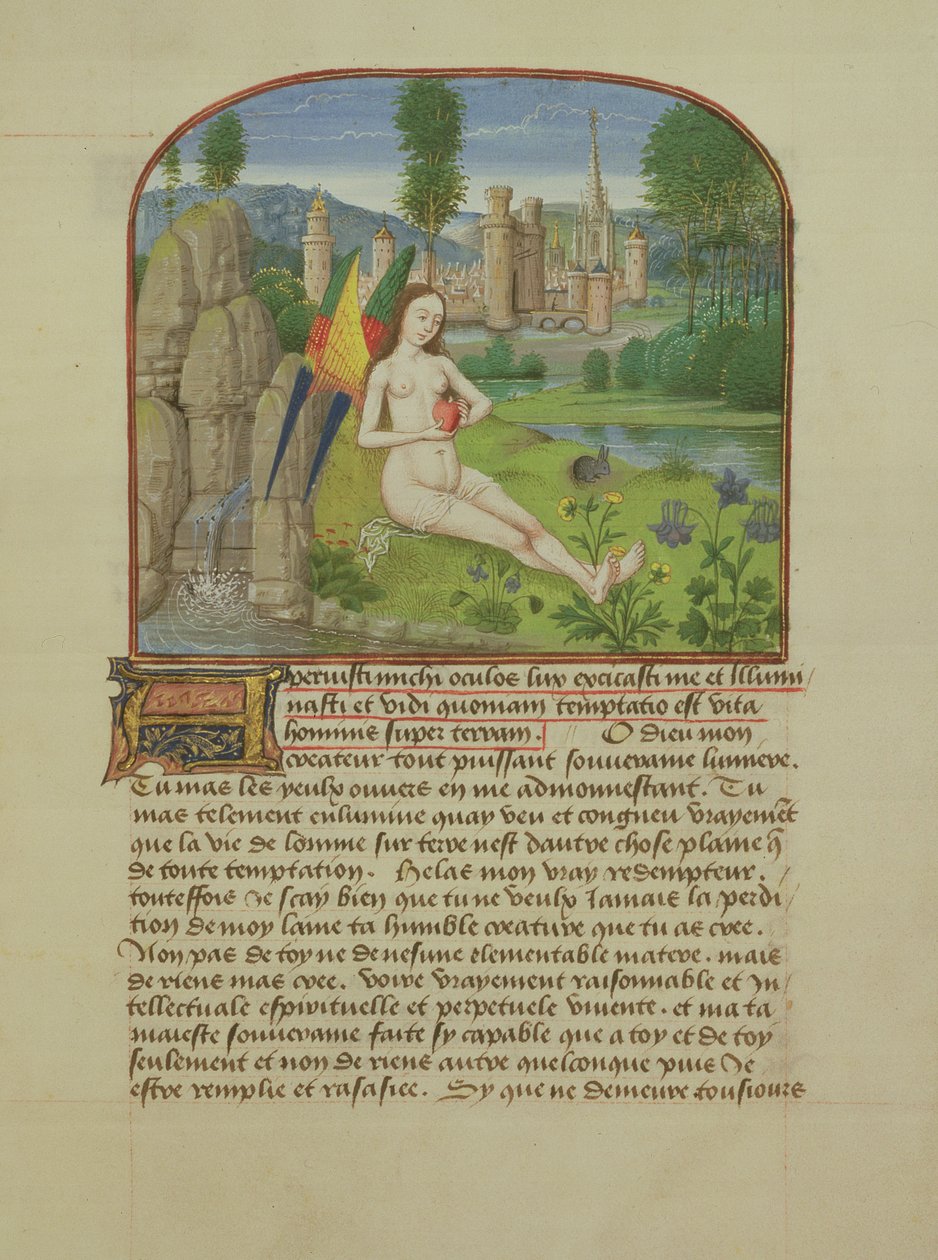 Aperuisti michi oculos lux excicasti me et Illumi
nasti et vidi quoniam temptatio est vita
hominis super terram. O dieu mon
createur tout puissant souveraine lumiere.
Tu mas les yeulx ouvers en me admonnestant. Tu
mas telement enlumine quay veu et congneu vrayemẽt
que la vie de lomme sur terre nest dautre chose plaine q̃
de toute temptation. Helas mon vray redempteur.
touteffois Je scay bien que tu ne veulx Jamais la perdi
tion de moy lame ta humble creature que tu as cree.
Non pas de toy ne de nesune elementable matere. mais
de riens mas cree. voire vrayement raisonnable et In
tellectuale espirituelle et perpetuele vivente. et ma ta
maieste souveraine faite sy capable que a toy et de toy
seulement et non de riens autre quelconque puis Je
estre remplie et rasasiee. Sy que ne demeure tousiours